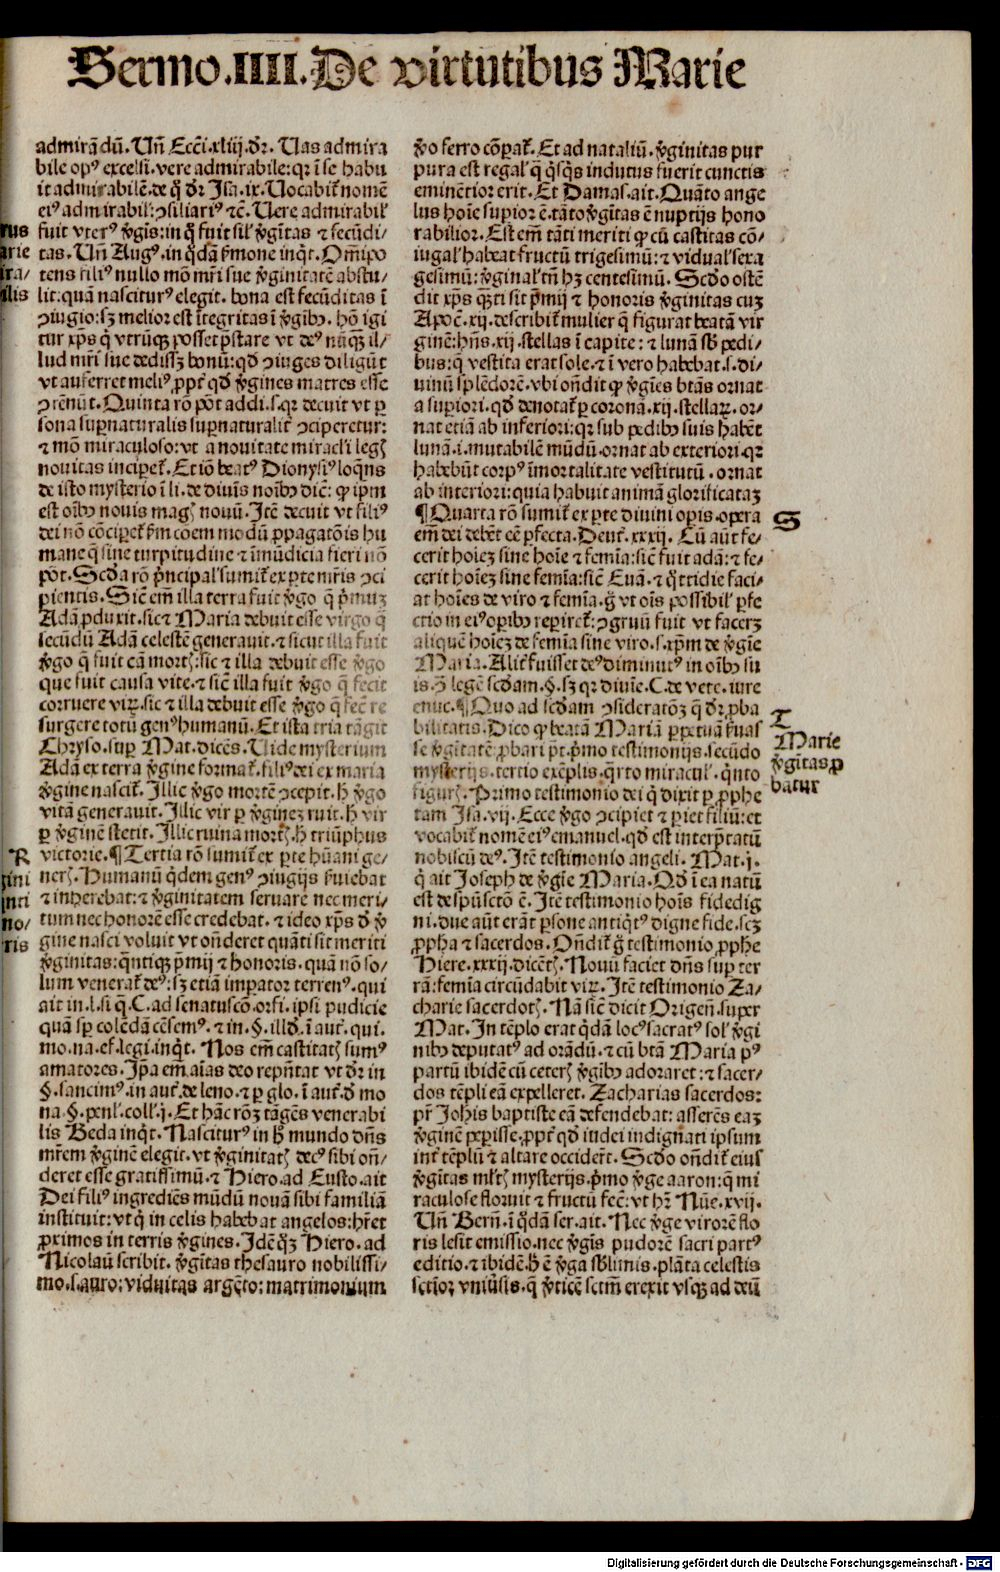 Sermo.IIII.De virtutibus Marie
admirādū. Un̄ Eccī.xliij.dr̄. Uas admira
bile opꝰ excelsi. vere admirabile: qꝛ ī se habu
it admirabilē. de q̄ dr̄ Isa.ix. Uocabit̄ nomē
eiꝰ admirabil': ꝯsiliariꝰ ⁊c̄. Uere admirabil'
fuit vterꝰ v̄gīs: in q̄ fuit sil' v̄gītas ⁊ fecūdi-
tas. Un̄ Augꝰ. in q̄dā s̄mone inqt̄. Om̄ipo
tens filiꝰ nullo mō mr̄i sue v̄ginitatē abstu-
lit: quā nasciturꝰ elegit. bona est fecūditas ī
ꝯiugio: sꝫ melior est ītegritas ī v̄gībꝰ. hō igi
tur xp̄s q̄ vtrūqꝫ posset p̄stare vt deꝰ nūqꝫ il-
lud mr̄i sue dedissꝫ bonū: qd̄ ꝯiuges diligūt
vt auferret meliꝰ ꝓpt̄ qd̄ v̄gines matres esse
ꝯtēnūt. Quinta rō pōt addi.s.qꝛ decuit vt ꝑ
sona suꝑnaturalis suꝑnaturalit̄ ꝯciperetur:
⁊ mō miraculoso: vt a nouitate miracl'i legꝭ
nouitas inciꝑet̄. Et iō beatꝰ Dionysiꝰ loq̄ns
de isto mysterio ī li. de diuīs noībꝰ dic̄: ꝙ ip̄m
est oībꝰ nouis magꝭ nouū. Itē decuit vt filiꝰ
dei nō cōciꝑet̄ ẜm cōem modū ꝓpagatōis hu
mane q̄ sine turpitudine ⁊ īmūdicia fieri nō
pōt. Scd̄a rō p̄ncipal' sumit̄ ex ꝑte mr̄is ꝯci
pientis. Sic̄ em̄ illa terra fuit v̄go q̄ p̄muꝫ
Adā ꝓduxit. sic ⁊ Maria debuit esse virgo q̄
secūdū Adā celestē generauit. ⁊ sicut illa fuit
v̄go q̄ fuit cā mortꝭ: sic ⁊ illa debuit esse v̄go
que fuit causa vite. ⁊ sic̄ illa fuit v̄go q̄ fecit
corruere viꝝ. sic ⁊ illa debuit esse v̄go q̄ fec̄ re
surgere totū genꝰ humanū. Et ista tria tāgit
Chryso. suꝑ Mat. dicēs. Uide mysterium
Adā ex terra v̄gine format̄. filiꝰ dei ex maria
v̄gine nascit̄. Illic v̄go mortē ꝯcepit. h̄ v̄go
vitā generauit. Illic vir ꝑ v̄gineꝫ ruit. h̄ vir
ꝑ v̄ginē stetit. Illic ruina mortꝭ. h̄ triūphus
victorie. ¶Tertia rō sumit̄ ex ꝑte hūani ge-
nerꝭ. Humanū q̄dem genꝰ ꝯiugijs s̄uiebat
⁊ inherebat: ⁊ v̄ginitatem seruare nec meri-
tum nec honorē esse credebat. ⁊ ideo xp̄s d̄ v̄
gine nasci voluit vt on̄deret quāti sit meriti
v̄ginitas: q̄ntiqꝫ p̄mij ⁊ honoris. quā nō so-
lum venerat̄ deꝰ: sꝫ etiā imꝑator terrenꝰ. qui
ait in.l.si q̄.C. ad senatuscō.orfi. ipsi pudicie
quā sp̄ colēdā cēsemꝰ. ⁊ in.§.illd̄.ī aut̄. qui.
mo.na.ef.legi.inqt̄. Nos em̄ castitatꝭ sumꝰ
amatores. Ip̄a em̄ aīas deo rep̄ntat vt dr̄ in
§.sancimꝰ.in aut̄.de leno.⁊ ꝑ glo.ī aut̄.d̄ mo
na.§.penl'.coll'.j. Et hāc rōꝫ tāgēs venerabi
lis Beda inqt̄. Nasciturꝰ in h̄ mundo dn̄s
mr̄em v̄ginē elegit. vt v̄ginitatꝭ decꝰ sibi on̄-
deret esse gratissimū. ⁊ Hiero. ad Eusto. ait
Dei filiꝰ ingrediēs mūdū nouā sibi familiā
instituit: vt q̄ in celis habebat angelos: hr̄et
ꝓximos in terris v̄gines. Idē qꝫ Hiero. ad
Nicolaū scribit. v̄gītas thesauro nobilissi-
mo.s.auro: viduitas argēto: matrimonium
v̄o ferro cōꝑat̄. Et ad nataliū. v̄ginitas pur
pura est regal' q̄ q̄sqs indutus fuerit cunctis
eminētior erit. Et Damas. ait. Quāto ange
lus hoīe suꝑior ē. tāto v̄gītas ē nuptijs hono
rabilior. Est em̄ tāti meriti ꝙ cū castitas cō-
iugal' habeat fructū trigesimū: ⁊ vidual' sexa
gesimū: v̄ginal' tn̄ hꝫ centesimū. Scd̄o ostē
dit xp̄s qꝫti sit p̄mij ⁊ honoris v̄ginitas cuꝫ
Apoc̄.xij. describit̄ mulier q̄ figurat beatā vir
ginē: hn̄s.xij.stellas ī capite: ⁊ lunā sb̄ pedi-
bus: q̄ vestita erat sole. ⁊ ī vero habebat.s.di-
uinū splēdorē. vbi on̄dit ꝙ v̄gīes btās ornat
a suꝑiori. qd̄ denotat̄ ꝑ coronā.xij.stellaꝝ. or-
nat etiā ab inferiori: qꝛ sub pedibꝰ suis habēt
lunā.i.mutabilē mūdū. ornat ab exteriori. qꝛ
habebūt corpꝰ īmortalitate vestitutū. ornat
ab interiori: quia habuit animā glorificataꝫ
¶Quarta rō sumit̄ ex ꝑte diuini oꝑis. opera
em̄ dei debēt cē ꝑfecta. Deut̄.xxxij. Cū aūt fe-
cerit hoīeꝫ sine hoīe ⁊ femīa: sic̄ fuit adā: ⁊ fe-
cerit hoīeꝫ sine femīa: sic̄ Euā. ⁊ q̄ttidie faci-
at hoīes de viro ⁊ femīa. ḡ vt oīs possibil' ꝑfe
ctio in eiꝰ oꝑibꝰ reꝑiret̄: ꝯgruū fuit vt facerꝫ
aliquē hoīeꝫ de femīa sine viro.s.xp̄m de v̄gīe
Maria. Alit̄ fuisset deꝰ diminutꝰ in oībꝰ su
is.ꝯ̄ legē scd̄am.§.sꝫ qꝛ diuīe.C.de vete.iure
enuc. ¶Quo ad scd̄am ꝯsideratōꝫ q̄ dr̄ ꝓba
bilitatis. Dico ꝙ beatā Mariā ꝑpetuā s̄uas
se v̄gītatē ꝓbari pt̄. p̄mo testimonijs. secūdo
mysterijs. tertio exēplis. q̄rto miracul'. q̄nto
figurꝭ. Primo testimonio dei q̄ dixit ꝑ ꝓphe
tam Isa.vij. Ecce v̄go ꝯcipiet ⁊ ꝑiet filiū: et
vocabit̄ nomē eiꝰ emanuel. qd̄ est interp̄tatū
nobiscū deꝰ. Itē testimonio angeli. Mat.j.
q̄ ait Joseph de v̄gīe Maria. Qd̄ ī ea natū
est de spūsctō ē. Itē testimonio hoīs fidedig
ni. due aūt erāt ꝑsone antiqtꝰ digne fide.scꝫ
ꝓpha ⁊ sacerdos. On̄dit̄ ḡ testimonio ꝓphe
Hiere.xxxij.dicētꝭ. Nouū faciet dn̄s suꝑ ter
rā: femīa circūdabit viꝝ. Itē testimonio Za-
charie sacerdotꝭ. Nā sic̄ dicit Origen̄. super
Mat. In tēplo erat q̄dā locꝰ sacratꝰ sol' v̄gi
nibꝰ deputatꝰ ad orādū. ⁊ cū btā Maria pꝰ
partū ibidē cū ceterꝭ v̄gībꝰ adoraret: ⁊ sacer-
dos tēpli eā expelleret. Zacharias sacerdos:
pr̄ Johis baptiste eā defendebat: asserēs eaꝫ
v̄ginē peꝑisse. ꝓpt̄ qd̄ iudei indignati ipsum
int̄ tēplū ⁊ altare occider̄t. Scd̄o on̄dit̄ eius
v̄gītas ml'tꝭ mysterijs. p̄mo v̄ge aaron: q̄ mi
raculose floruit ⁊ fructū fec̄: vt hr̄ Nūe.xvij.
Un̄ Bern̄. ī q̄dā ser. ait. Nec v̄ge virorē flo
ris lesit emissio. nec v̄gīs pudorē sacri partꝰ
editio. ⁊ ibidē. h̄ ē v̄ga sb̄limis. plāta celestis
sctīoꝝ vniūsis. q̄ v̄ticē sctm̄ erexit vsqꝫ ad deū
S
T
Marie
v̄gītas ꝓ
batur
R